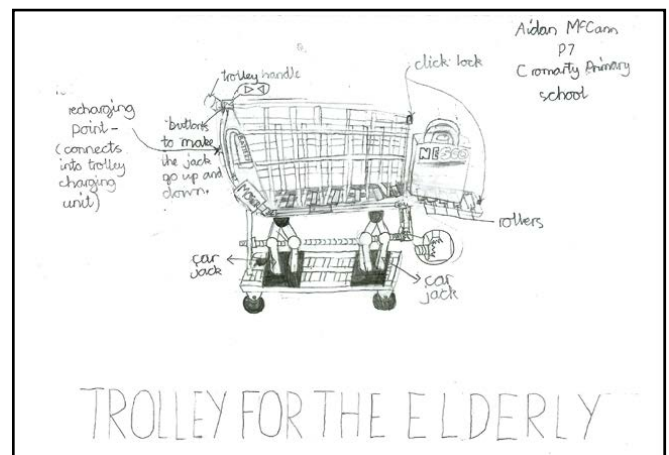 Aidan McCann
P7
Cromarty Primary
school
trolley handle
click lock
recharging
point -
(connects
into trolley
charging
unit)
buttons
to make
the jack
go up and
down.
BATTERY
MOTOR
rollers
car
jack
car
jack
TROLLEY FOR THE ELDERLY